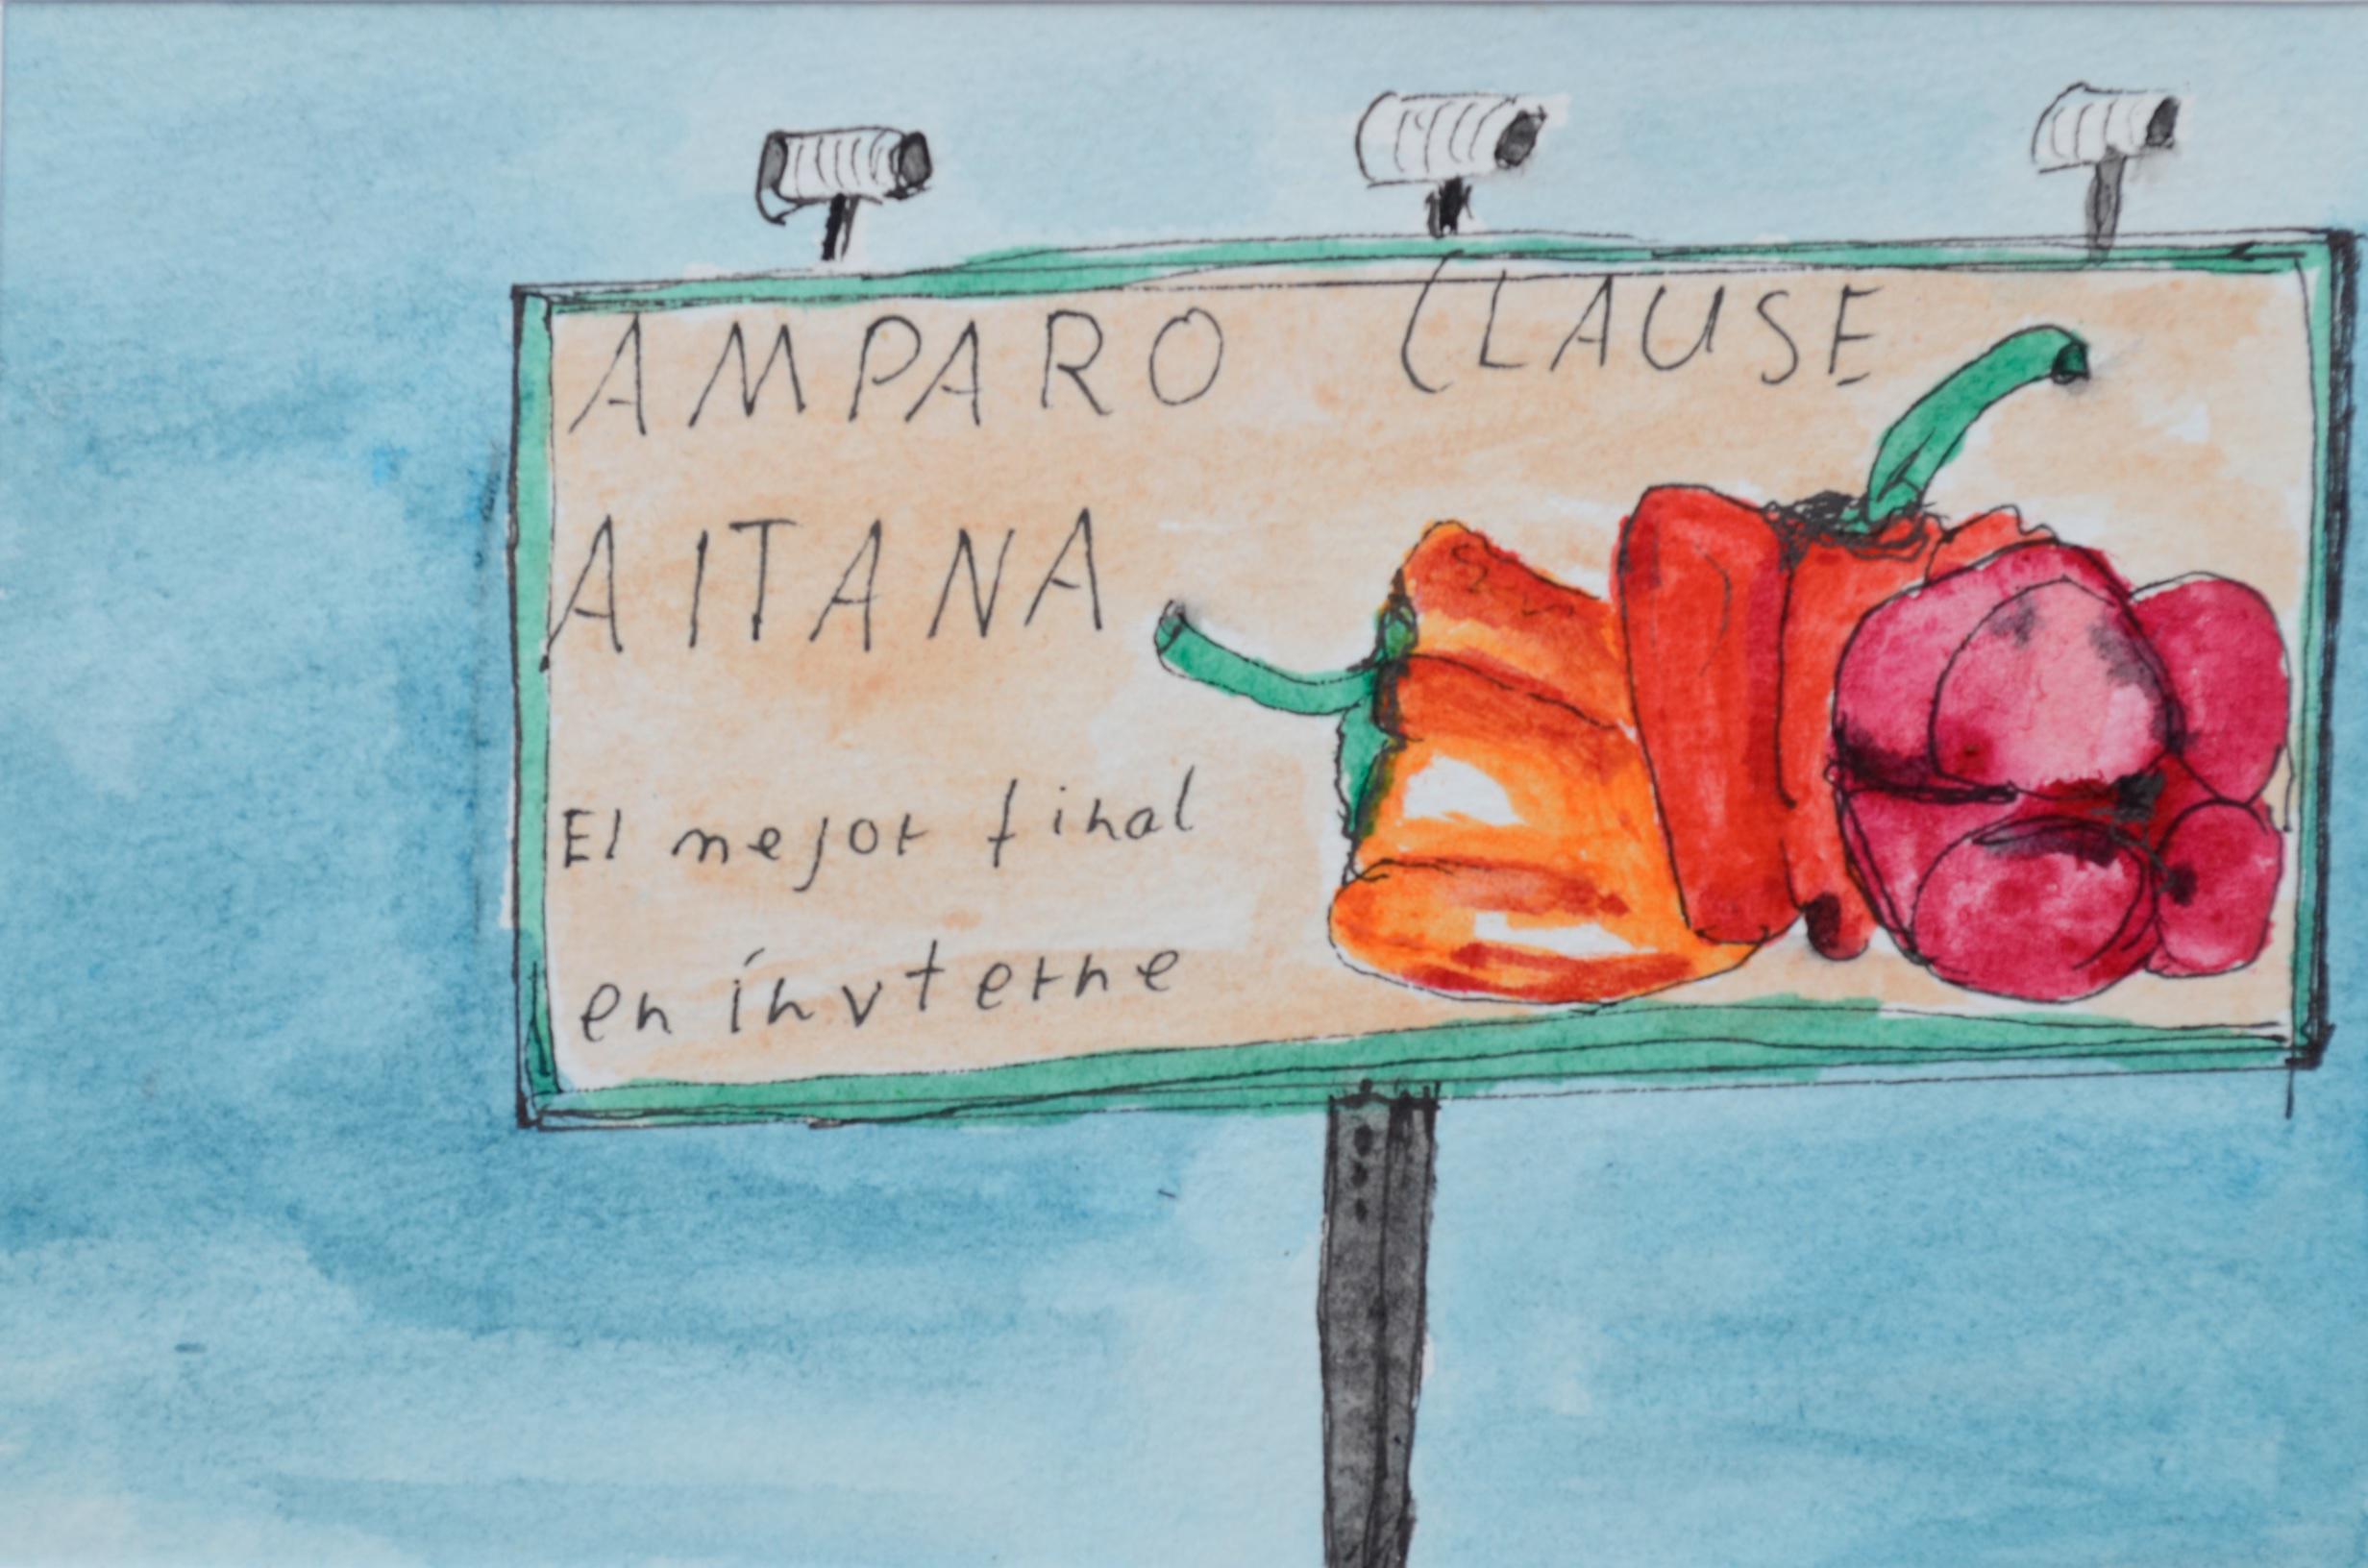 AMPARO CLAUSE
AITANA
El mejor final
en invterne